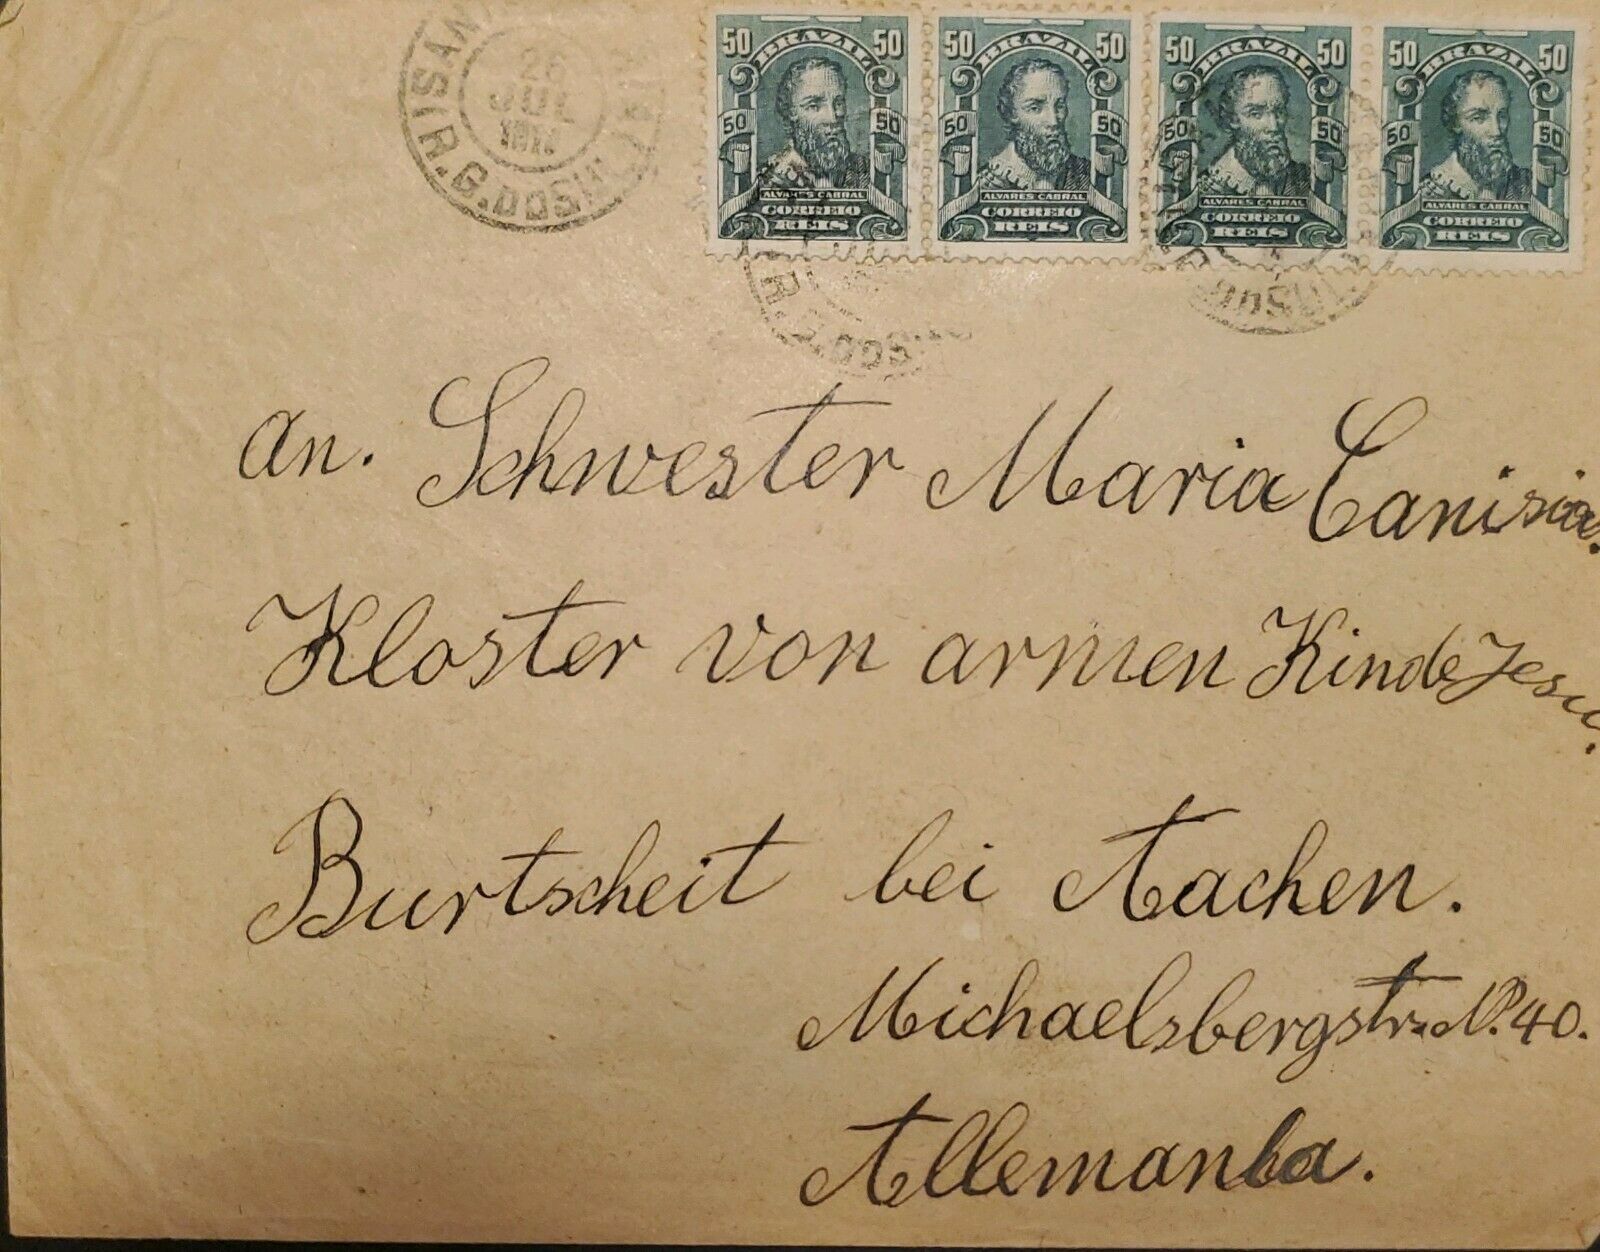 50 BRAZIL 50
50 50
ALVARES CABRAL
CORREIO
REIS
50 BRAZIL 50
50 50
ALVARES CABRAL
CORREIO
REIS
50 BRAZIL 50
50 50
ALVARES CABRAL
CORREIO
REIS
50 BRAZIL 50
50 50
ALVARES CABRAL
CORREIO
REIS
26
JUL
R.G.DO SUL
an. Schwester Maria Canisia.
Kloster von armen Kinde Jesu.
Burtscheit bei Aachen.
Michaelsbergstr. No. 40.
Allemanha.